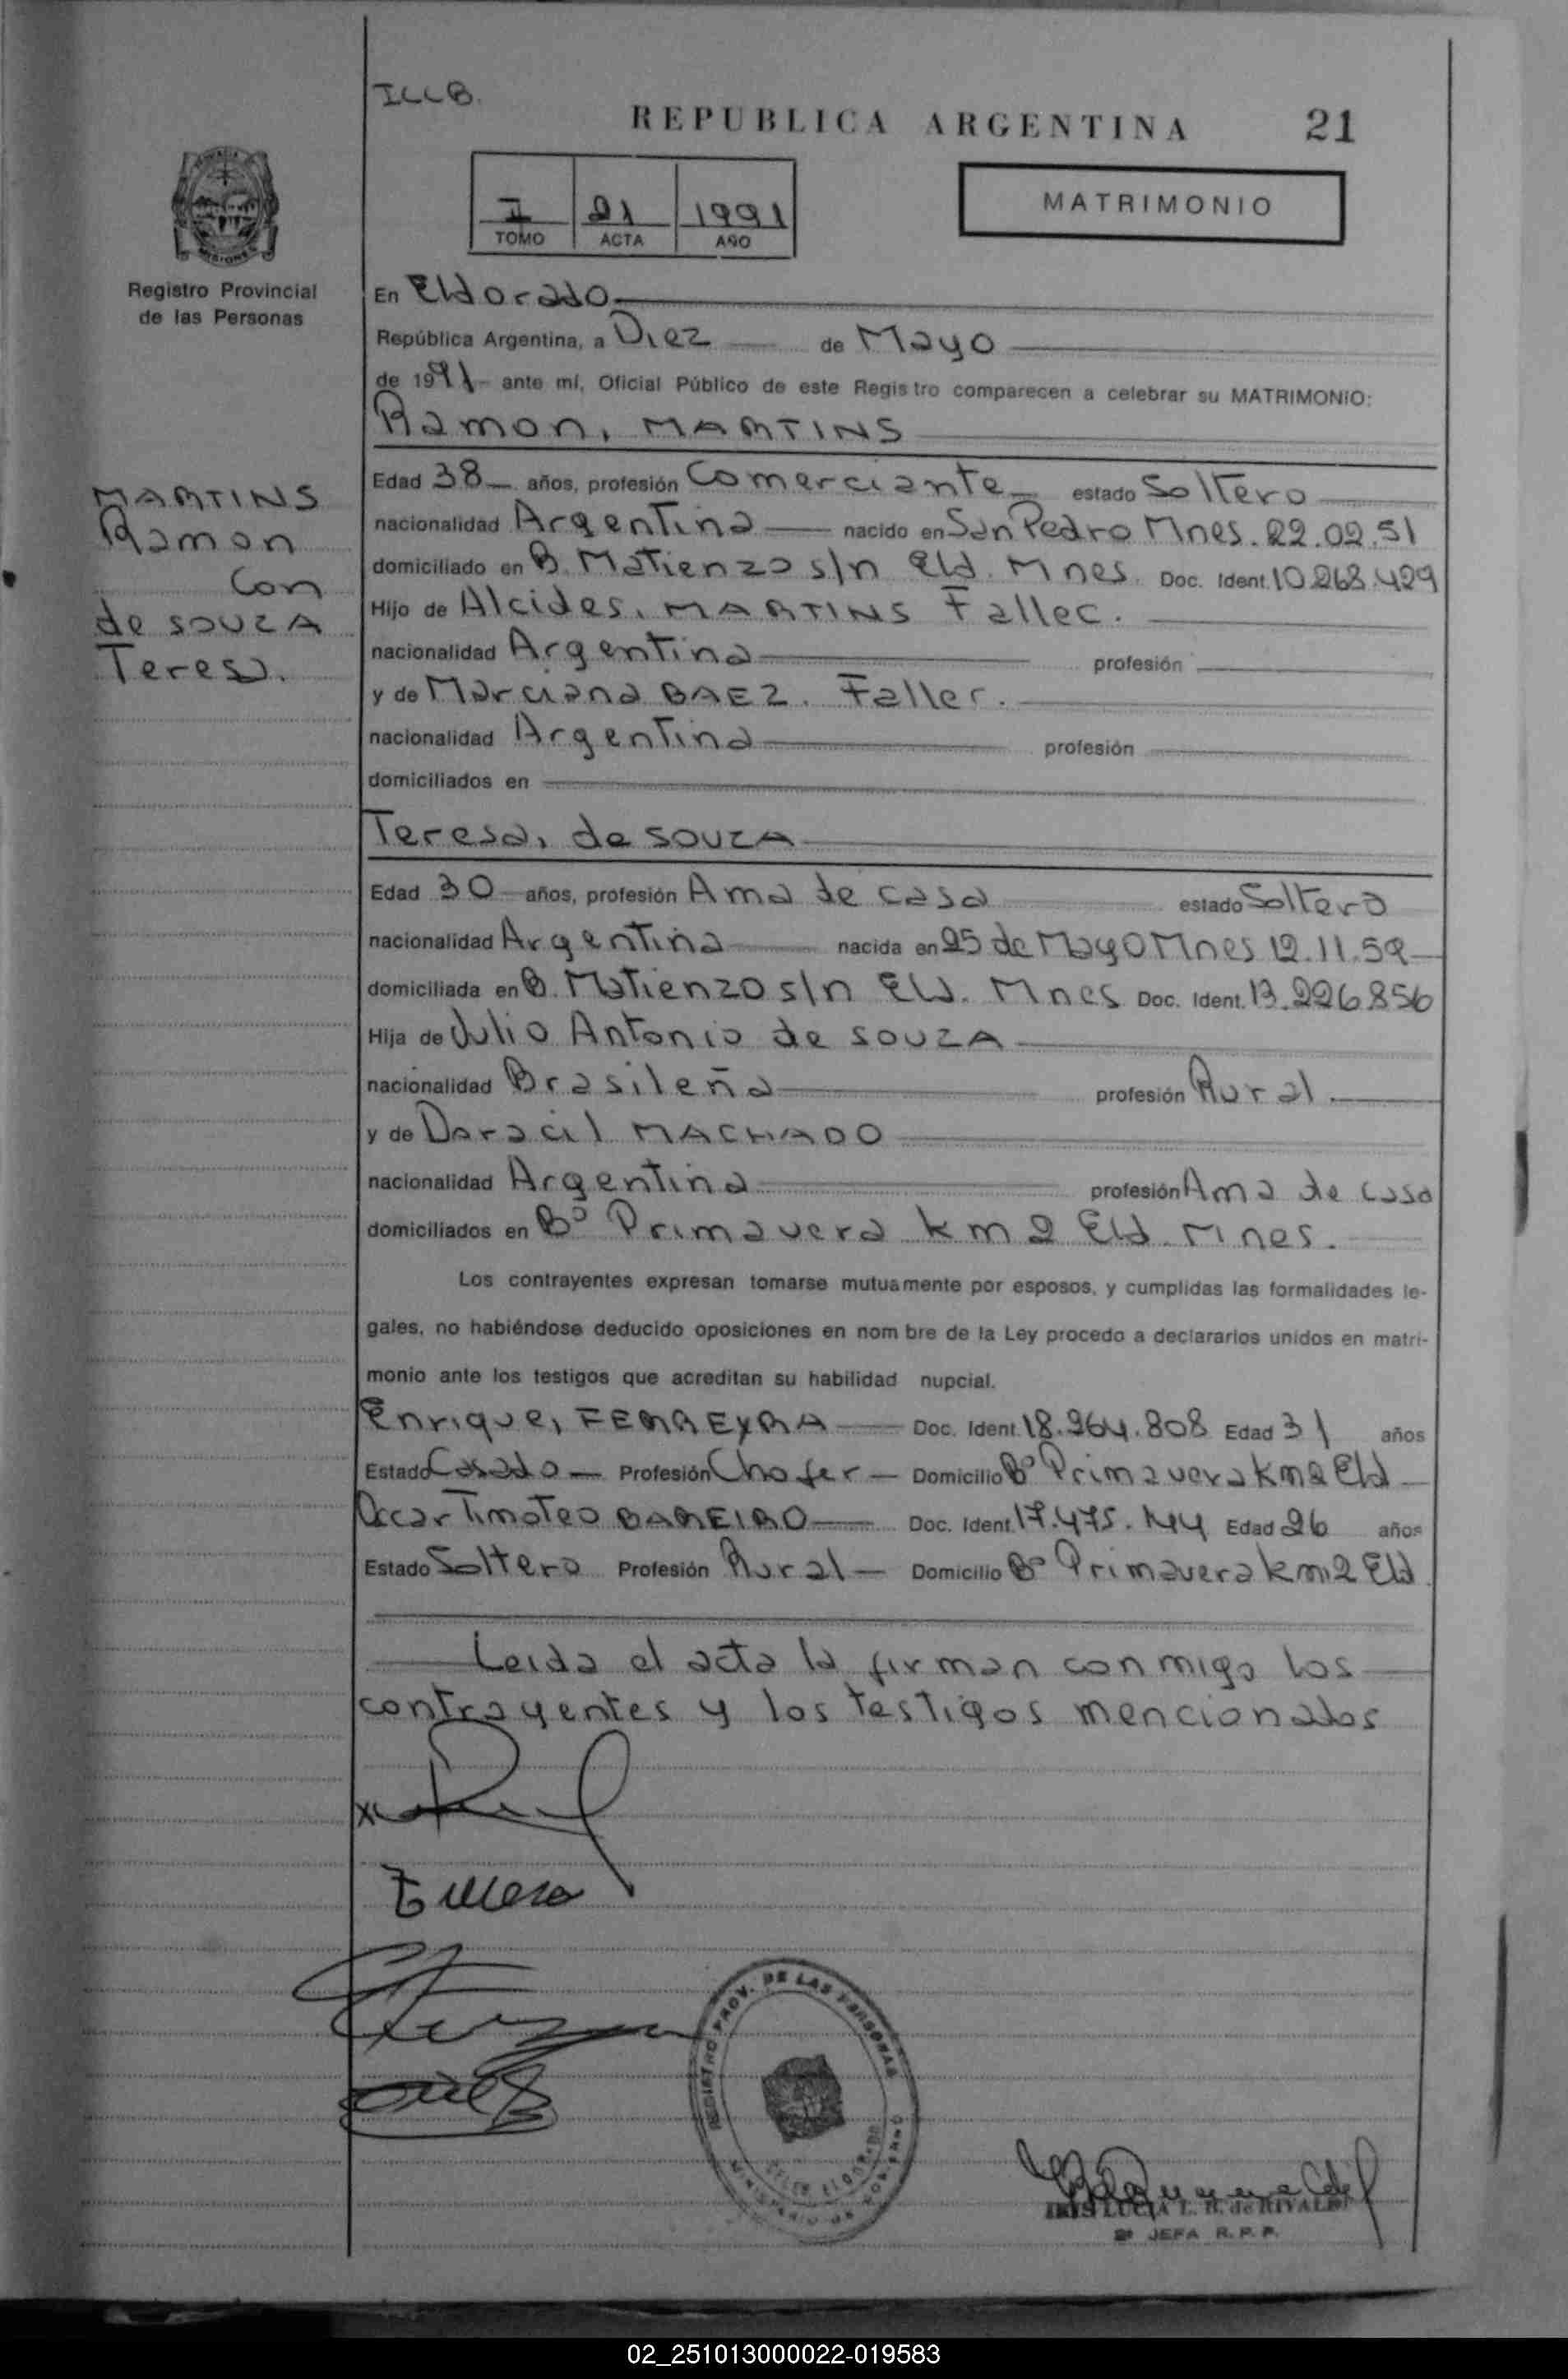 ILLB.
REPUBLICA ARGENTINA 21
I 21 1991
TOMO ACTA AÑO
MATRIMONIO
Registro Provincial
de las Personas
En Eldorado
República Argentina, a Diez de Mayo
de 1991 ante mí, Oficial Público de este Registro comparecen a celebrar su MATRIMONIO:
Ramon, MARTINS
MARTINS
Ramon
Con
de SOUZA
Teresa.
Edad 38 años, profesión Comerciante estado Soltero
nacionalidad Argentina nacido en San Pedro Mnes. 22.02.51
domiciliado en B. Matienzo s/n Eld. Mnes. Doc. Ident. 10.268.429
Hijo de Alcides, MARTINS Fallec.
nacionalidad Argentina profesión
y de Marciana BAEZ. Fallec.
nacionalidad Argentina profesión
domiciliados en
Teresa, de SOUZA
Edad 30 años, profesión Ama de casa estado Soltera
nacionalidad Argentina nacida en 25 de Mayo Mnes 12.11.59
domiciliada en B. Matienzo s/n Eld. Mnes Doc. Ident. 13.226.856
Hija de Julio Antonio de SOUZA
nacionalidad Brasileña profesión Rural.
y de Doracil MACHADO
nacionalidad Argentina profesión Ama de casa
domiciliados en Bº Primavera km 2 Eld. Mnes.
Los contrayentes expresan tomarse mutuamente por esposos, y cumplidas las formalidades le-
gales, no habiéndose deducido oposiciones en nombre de la Ley procedo a declararlos unidos en matri-
monio ante los testigos que acreditan su habilidad nupcial.
Enrique, FERREYRA Doc. Ident. 18.264.808 Edad 31 años
Estado Casado Profesión Chofer Domicilio Bº Primavera km 2 Eld
Oscar Timoteo BAREIRO Doc. Ident. 17.475.144 Edad 26 años
Estado Soltero Profesión Rural Domicilio Bº Primavera km 2 Eld.
Leida el acta la firman conmigo los
contrayentes y los testigos mencionados
REGISTRO PROV. DE LAS PERSONAS
IRIS LUCIA L. B. de RIVALDI
2ª JEFA R. P. P.
02_251013000022-019583